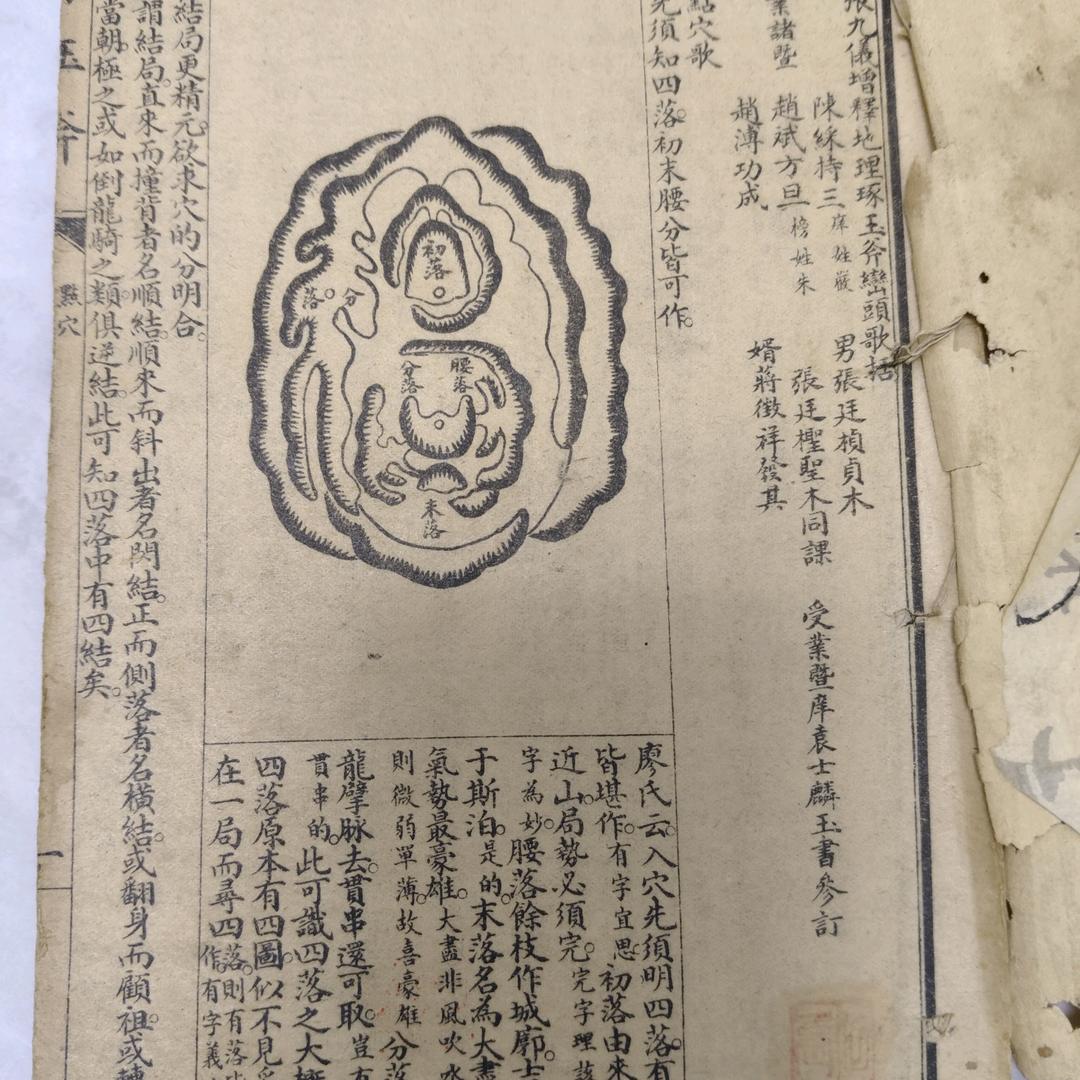 張九儀增釋地理琢玉斧巒頭歌括
男張廷楨貞木
陳綵持三庠姓嚴
張廷樫聖木同課
受業暨庠袁士麟玉書參訂
業諸暨
趙斌方旦榜姓朱
婿蔣徵祥發其
趙溥功成
點穴歌
先須知四落。初末腰分皆可作。
初落
分落。
分落
腰落
末落
廖氏云。入穴先須明四落。有
皆堪作。有字宜思。初落由來
近山。局勢必須完。完字理該
字為妙。腰落餘枝作城廓。
于斯泊。是的。末落名為大盡
氣勢最豪雄。大盡非風吹水
則微弱單薄。故喜豪雄。分落
龍擘脉去。貫串還可取。豈有
貫串的。此可識四落之大
四落原本有四圖。似不見
在一局而尋四落。則有落
作。有字義
結局更精元。欲求穴的分明合。
謂結局。直來而撞背者名順結。順來而斜出者名閃結。正而側落者名橫結。或翻身而顧祖。或
當朝。極之或如倒龍騎之類。俱逆結。此可知四落中有四結矣。
玉斧
點穴
一